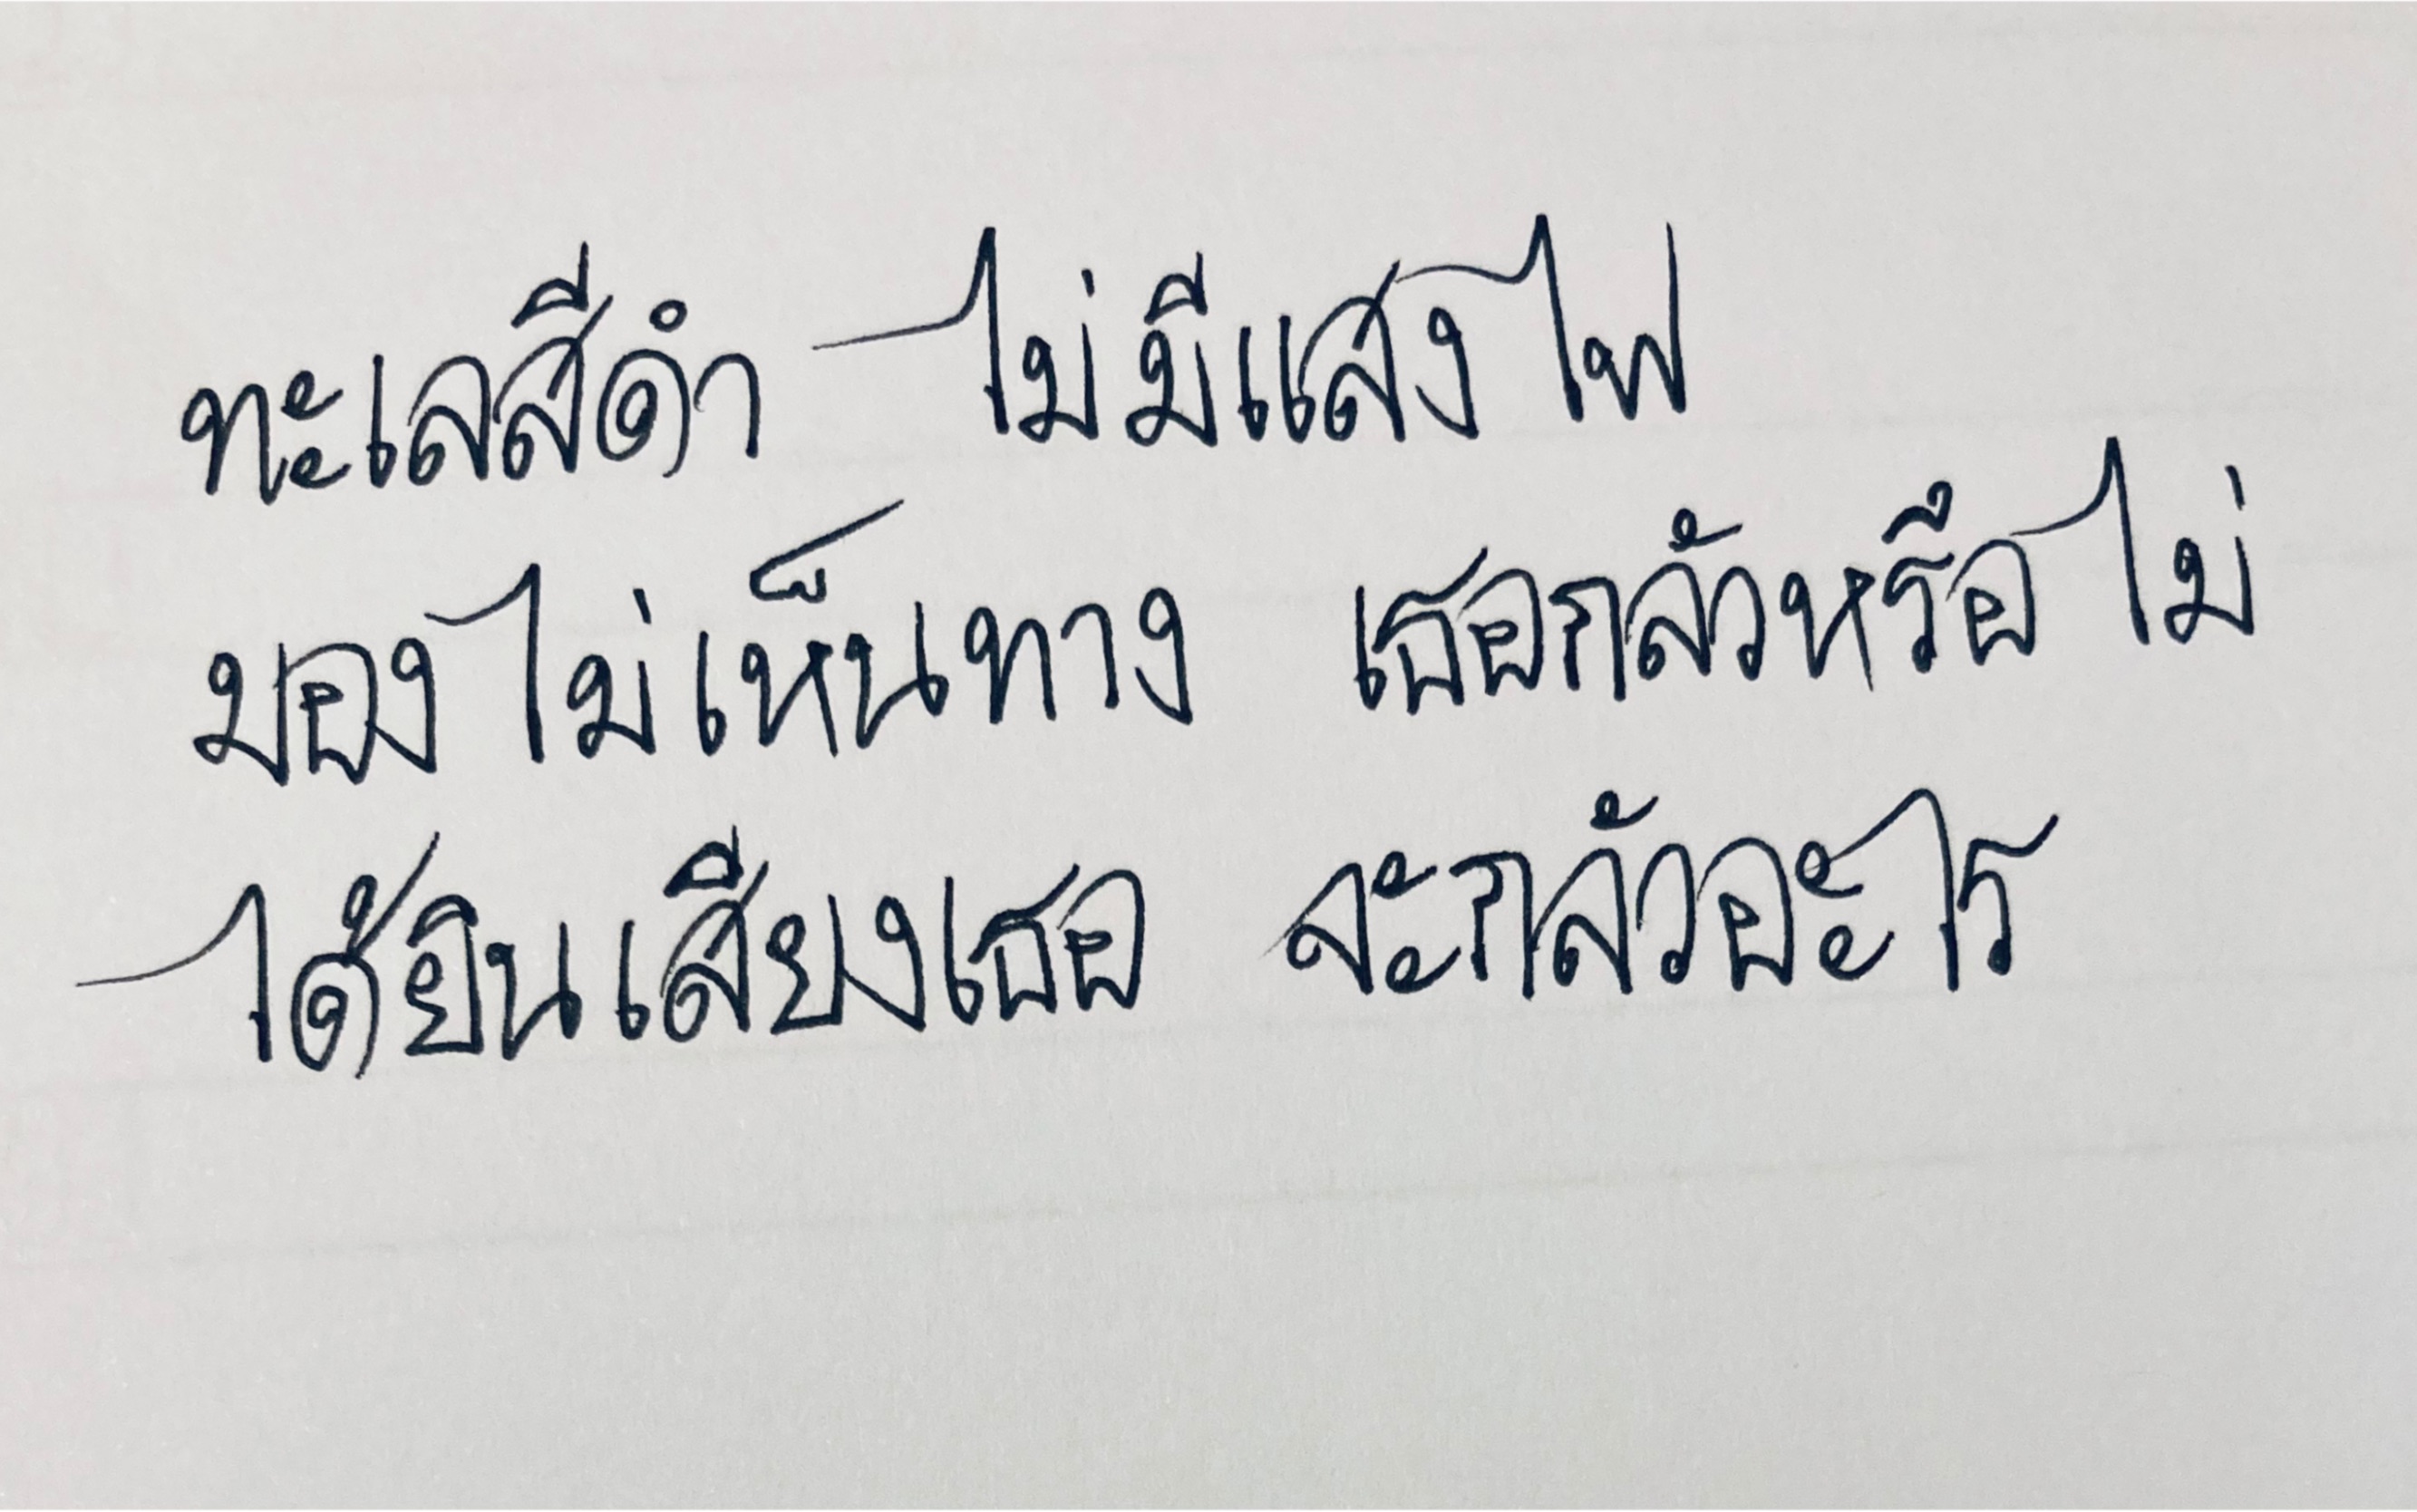 ทะเลสีดำ ไม่มีแสงไฟ
มองไม่เห็นทาง เธอกลัวหรือไม่
ได้ยินเสียงเธอ จะกลัวอะไร